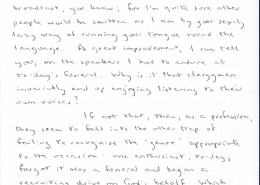 broadcast, you know; for I'm quite sure other
people would be smitten as I am by your sexily
lazy way of running your tongue round the
language. A great improvement, I can tell
you, on the speakers I had to endure at
to-day's funeral. Why is it that clergymen
invariably end up enjoying listening to their
own voices?
If not that, then, as a profession,
they seem to fall into the other trap of
failing to recognise the "genre" appropriate
to the occasion: one enthusiast, to-day,
forgot it was a funeral and began a
recruiting drive on God's behalf which